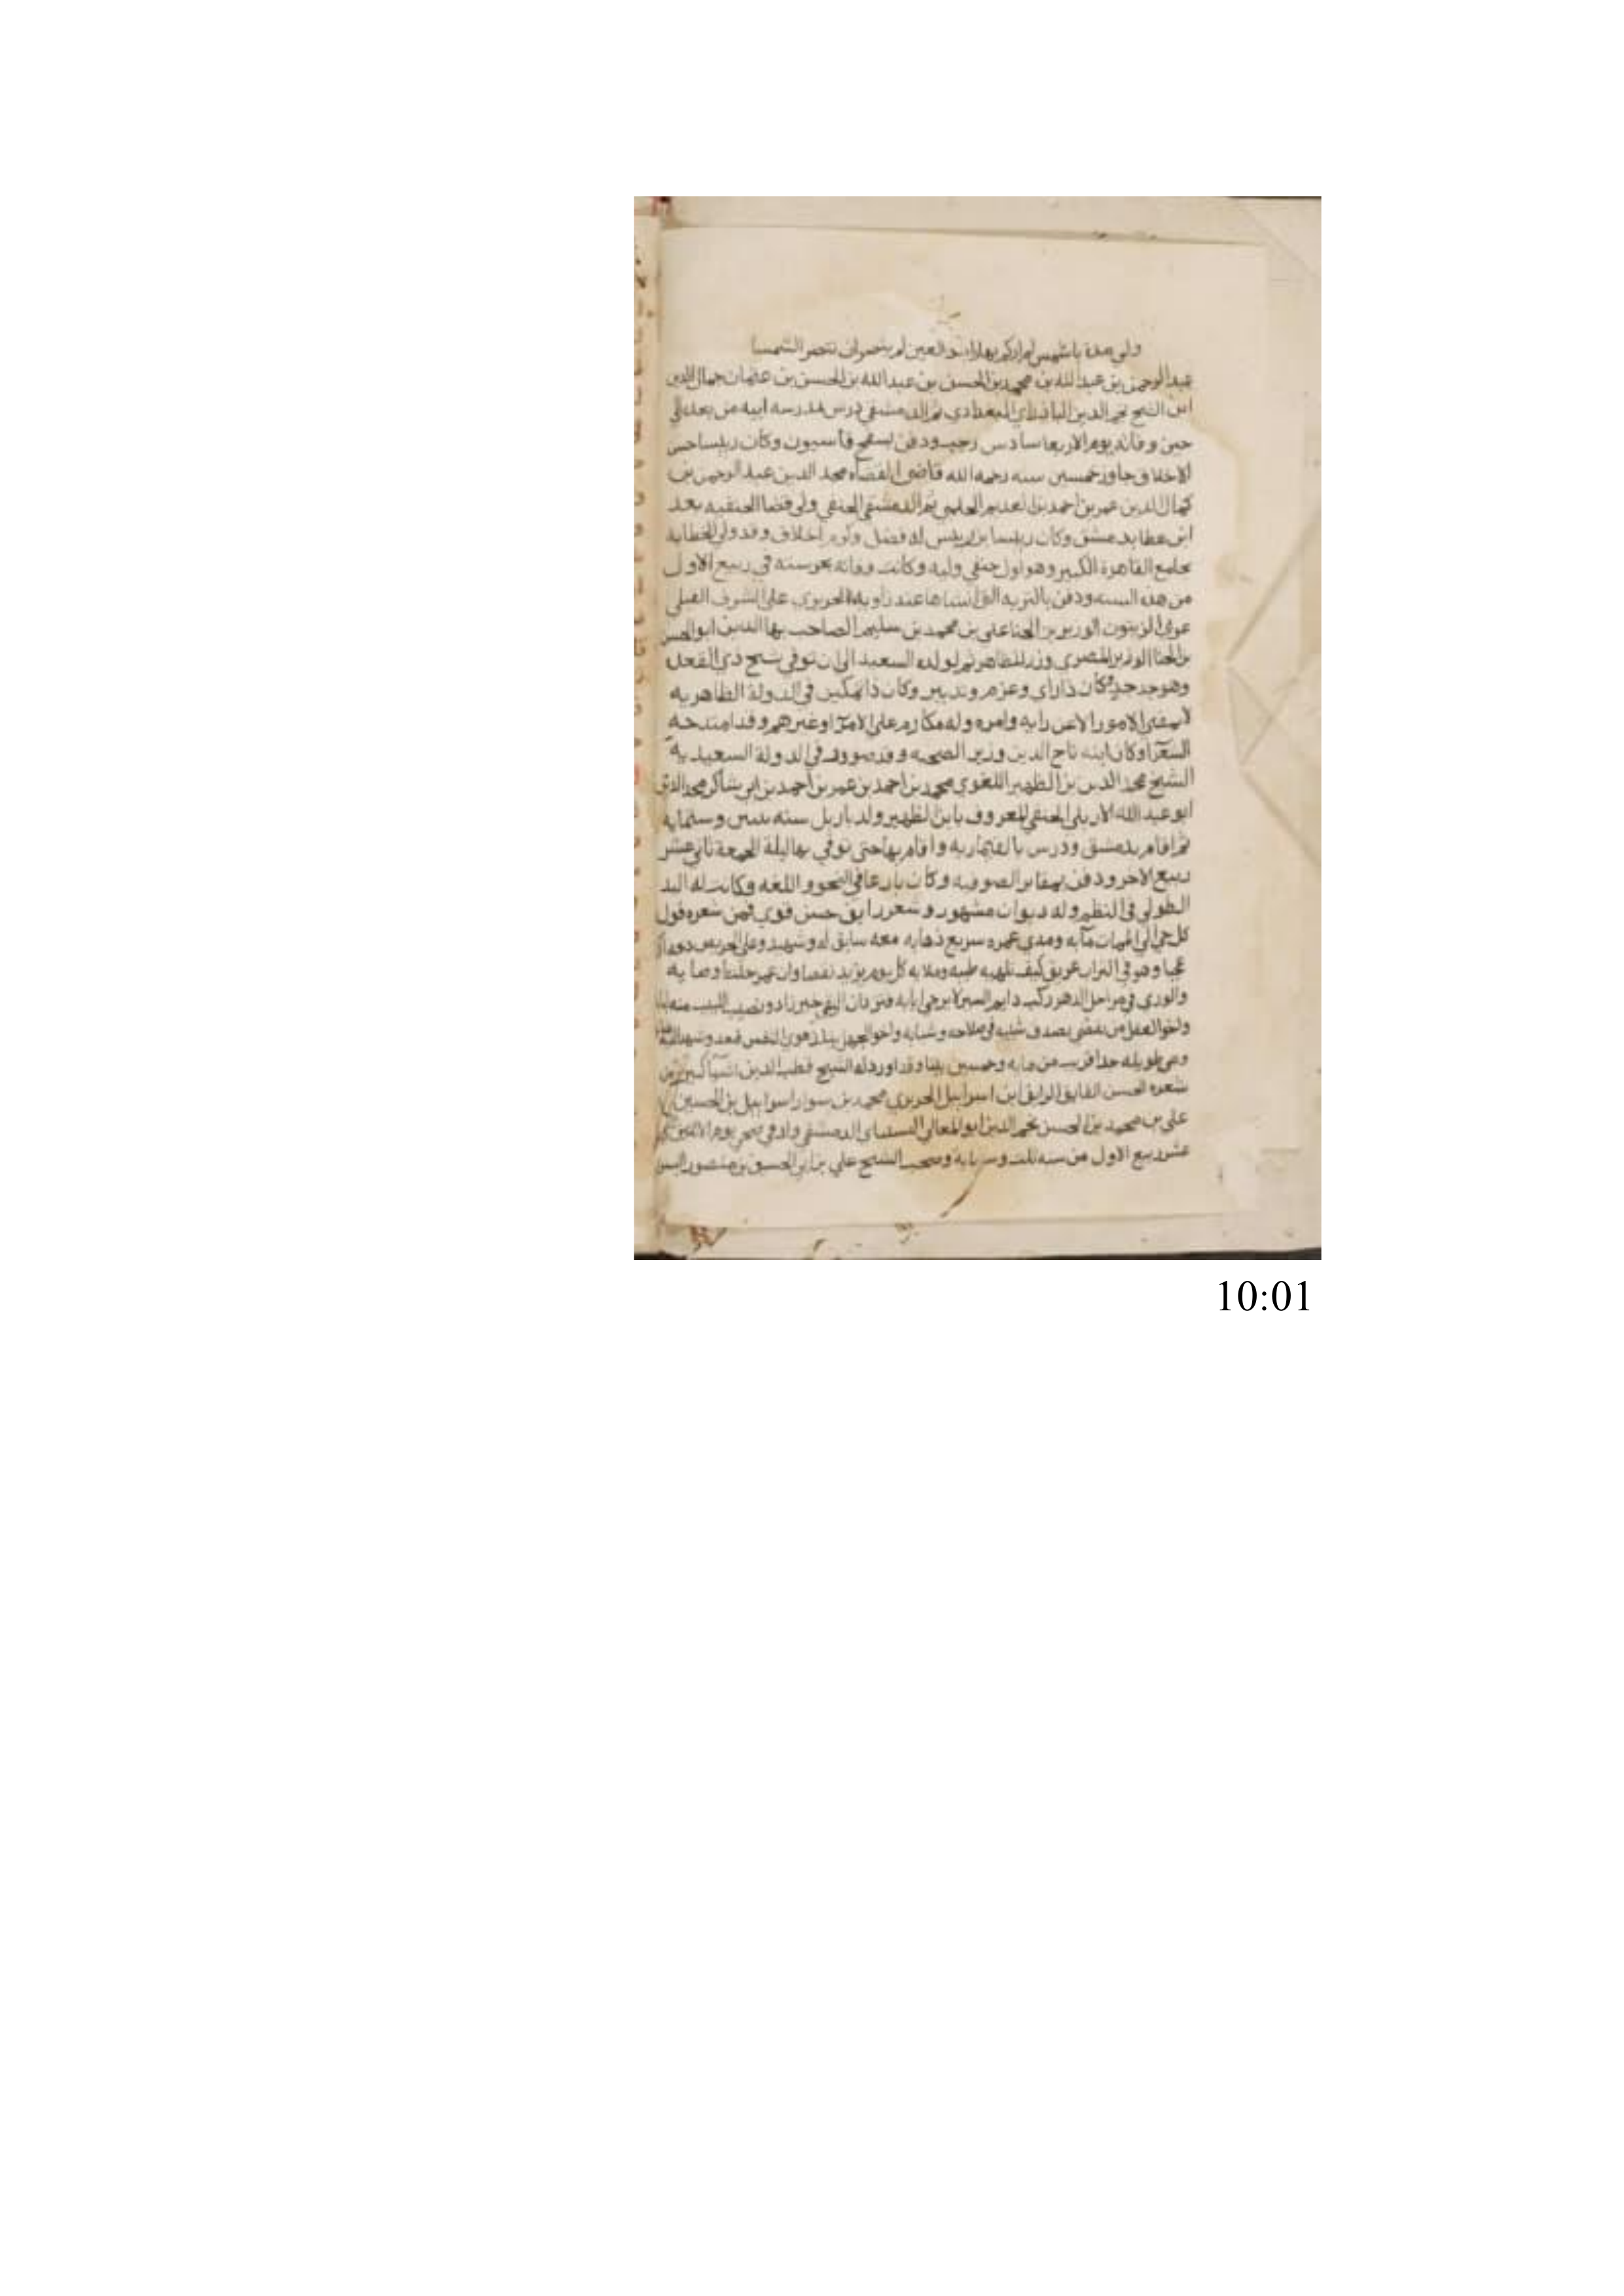 ولي مدة يا شمس لم اركم بها العين لم ينصر ان تنصر الشمسا
عبد الرحمن بن عبد الله بن محمد بن الحسن بن عبد الله بن الحسن بن عثمان جمال الدين
ابن الشيخ نجم الدين البادراي البغدادي ثم الدمشقي درس بمدرسه ابيه من بعده الي
حين وفاته يوم الاربعا سادس رجب ودفن بسفح قاسيون وكان رييسا حسن
الاخلاق جاوز خمسين سنه رحمه الله قاضي القضاه مجد الدين عبد الرحمن بن
كمال الدين عمر بن احمد بن العديم الحلبي ثم الدمشقي الحنفي ولي قضا الحنفيه بعد
ابن عطا بدمشق وكان رييسا بن رييس له فضل وكرم اخلاق وقد ولي الخطابه
بجامع القاهرة الكبير وهو اول حنفي وليه وكانت وفاته بجوسقه في ربيع الاول
من هذه السنه ودفن بالتربه التي انشاها عند زاويه الحريري علي الشرف القبلي
غربي الزيتون الوزير بن الحنا علي بن محمد بن سليم الصاحب بها الدين ابو الحسن
بن الحنا الوزير المصري وزر للظاهر ثم لولده السعيد الي ان توفي سلخ ذي القعده
وهو جد جد وكان ذا راي وعزم وتدبير وكان ذا تمكين في الدولة الظاهريه
لا يمضي الامور الا عن رايه وامره وله مكارم علي الامرا وغيرهم وقد امتدحه
الشعرا وكان ابنه تاج الدين وزير الصحبه وقد صودر في الدولة السعيديه
الشيخ مجد الدين بن الظهير اللغوي محمد بن احمد بن عمر بن احمد بن ابي شاكر مجد الدين
ابو عبد الله الاربلي الحنفي المعروف بابن الظهير ولد باربل سنه ثنتين وستمايه
ثم اقام بدمشق ودرس بالقايمازيه واقام بها حتي توفي بها ليلة الجمعة ثاني عشر
ربيع الاخر ودفن بمقابر الصوفيه وكان بارعا في النحو واللغه وكانت له اليد
الطولي في النظم وله ديوان مشهور وشعر رايق حسن قوي فمن شعره قوله
كل حي الي الممات مآبه ومدي عمره سريع ذهابه معه سابق له وشهيد وعلي الحريص
عجبا وهو في التراب غريق كيف تلهيه طيبه وملابه كل يوم يزيد نقصا وان عمر حلت اوصابه
والوري في مراحل الدهر ركب دايم السير لا يرجي ايابه فتزود ان التقي خير زاد ونصيب اللبيب منه
واخو العقل من يقضي بصدق شيبه في صلاحه وشبابه واخو الجهل يستلذ هوي النفس فيغدو شهدا
وهي طويله جدا قريب من مايه وخمسين بيتا وقد اورد له الشيخ قطب الدين اشيا كثيره من
شعره الحسن الفايق الرايق ابن اسراييل الحريري محمد بن سوار اسراييل بن الحسين
علي بن محمد بن الحسن نجم الدين ابو المعالي الشيباني الدمشقي ولد في ضحي يوم الاثنين
عشر ربيع الاول من سنه ثلث وستمايه وصحب الشيخ علي بن ابي الحسن بن منصور
10:01